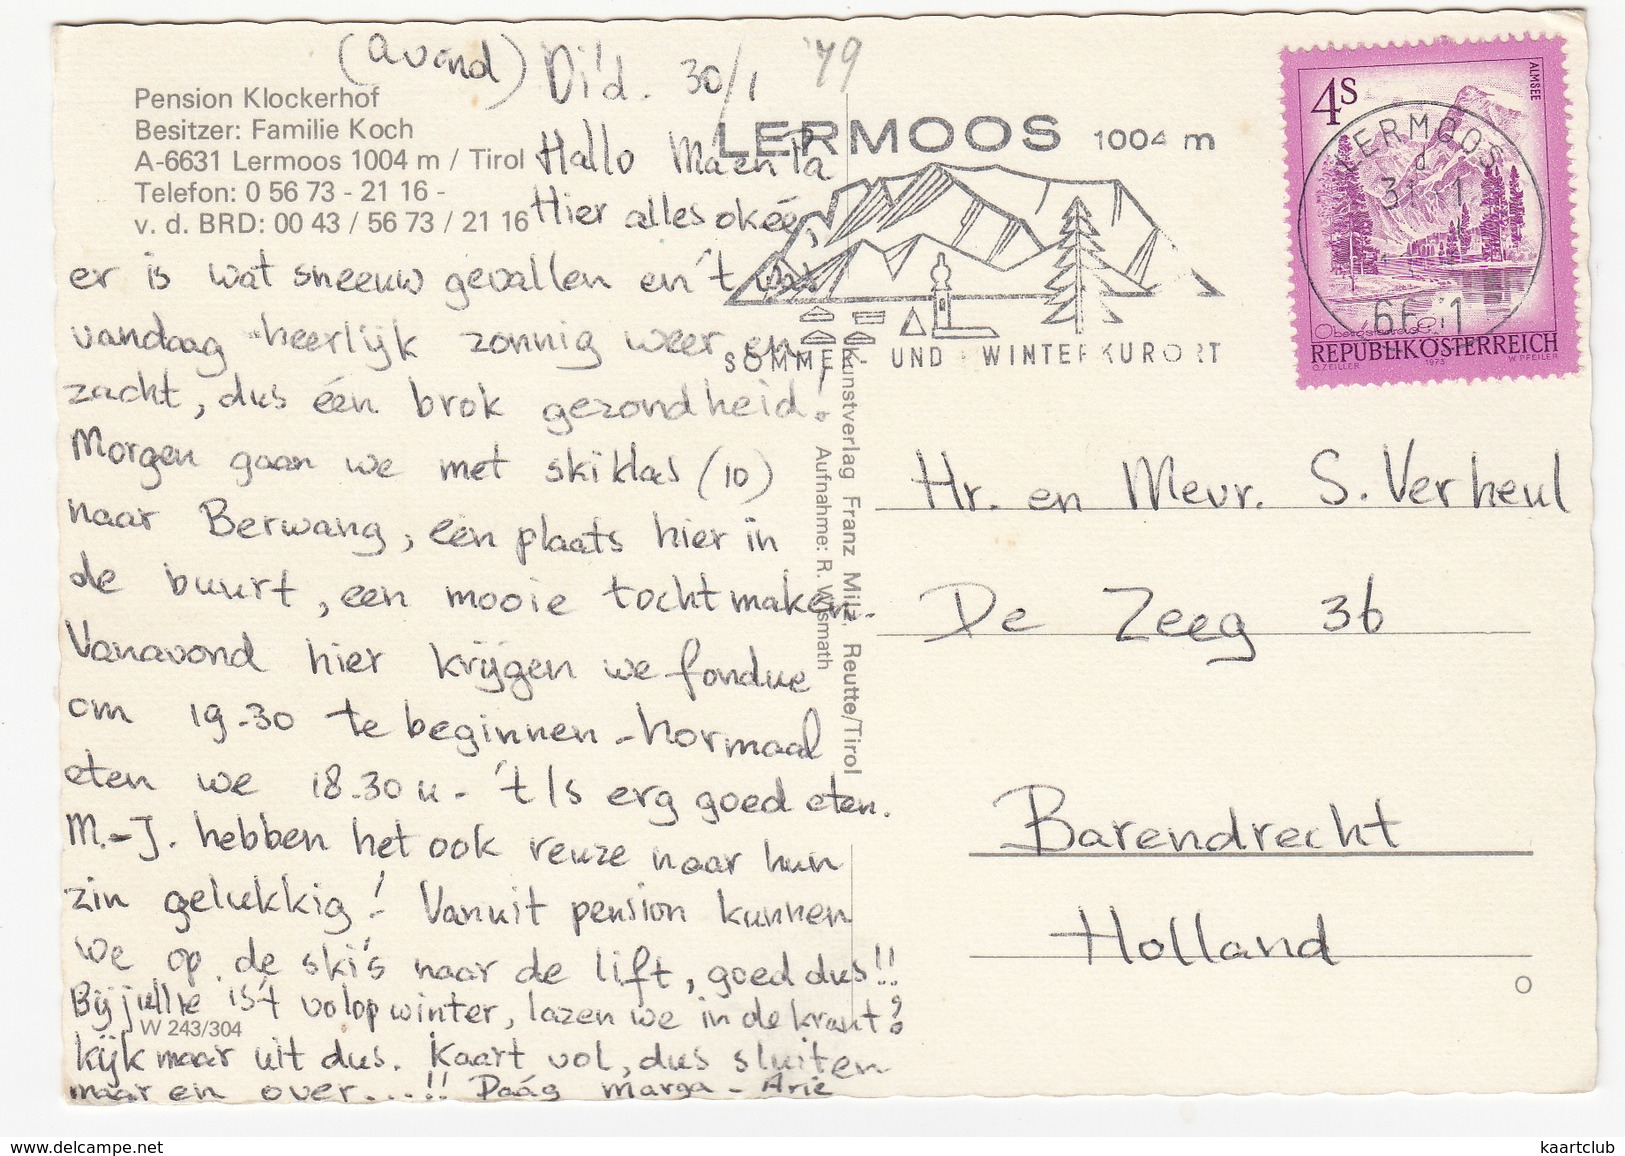 (avond) Di'd. 30/1 '79
Pension Klockerhof
Besitzer: Familie Koch
A-6631 Lermoos 1004 m / Tirol
Telefon: 0 56 73 - 21 16 -
v. d. BRD: 00 43 / 56 73 / 21 16
Hallo Ma en Pa
Hier alles okee,
er is wat sneeuw gevallen en 't was
vandaag heerlijk zonnig weer en
zacht, dus één brok gezondheid!
Morgen gaan we met skiklas (10)
naar Berwang, een plaats hier in
de buurt, een mooie tocht maken.
Vanavond hier krijgen we fondue
om 19.30 te beginnen - normaal
eten we 18.30 u - 't Is erg goed eten.
M.-J. hebben het ook reuze naar hun
zin gelukkig! Vanuit pension kunnen
we op de ski's naar de lift, goed dus!!
Bij jullie is 't volop winter, lazen we in de krant?
W 243/304
kijk maar uit dus. Kaart vol, dus sluiten
maar en over...!! Daág Marga - Arie
LERMOOS 1004 m
SOMMER UND WINTERKURORT
Kunstverlag Franz Milz, Reutte/Tirol
Aufnahme: R. Wismath
4S
ALMSEE
LERMOOS
31
1
6631
Oberösterreich
REPUBLIK ÖSTERREICH
O. ZEILLER 1973 W. PFEILER
Hr. en Mevr. S. Verheul
De Zeeg 36
Barendrecht
Holland
delcampe.net
kaartclub